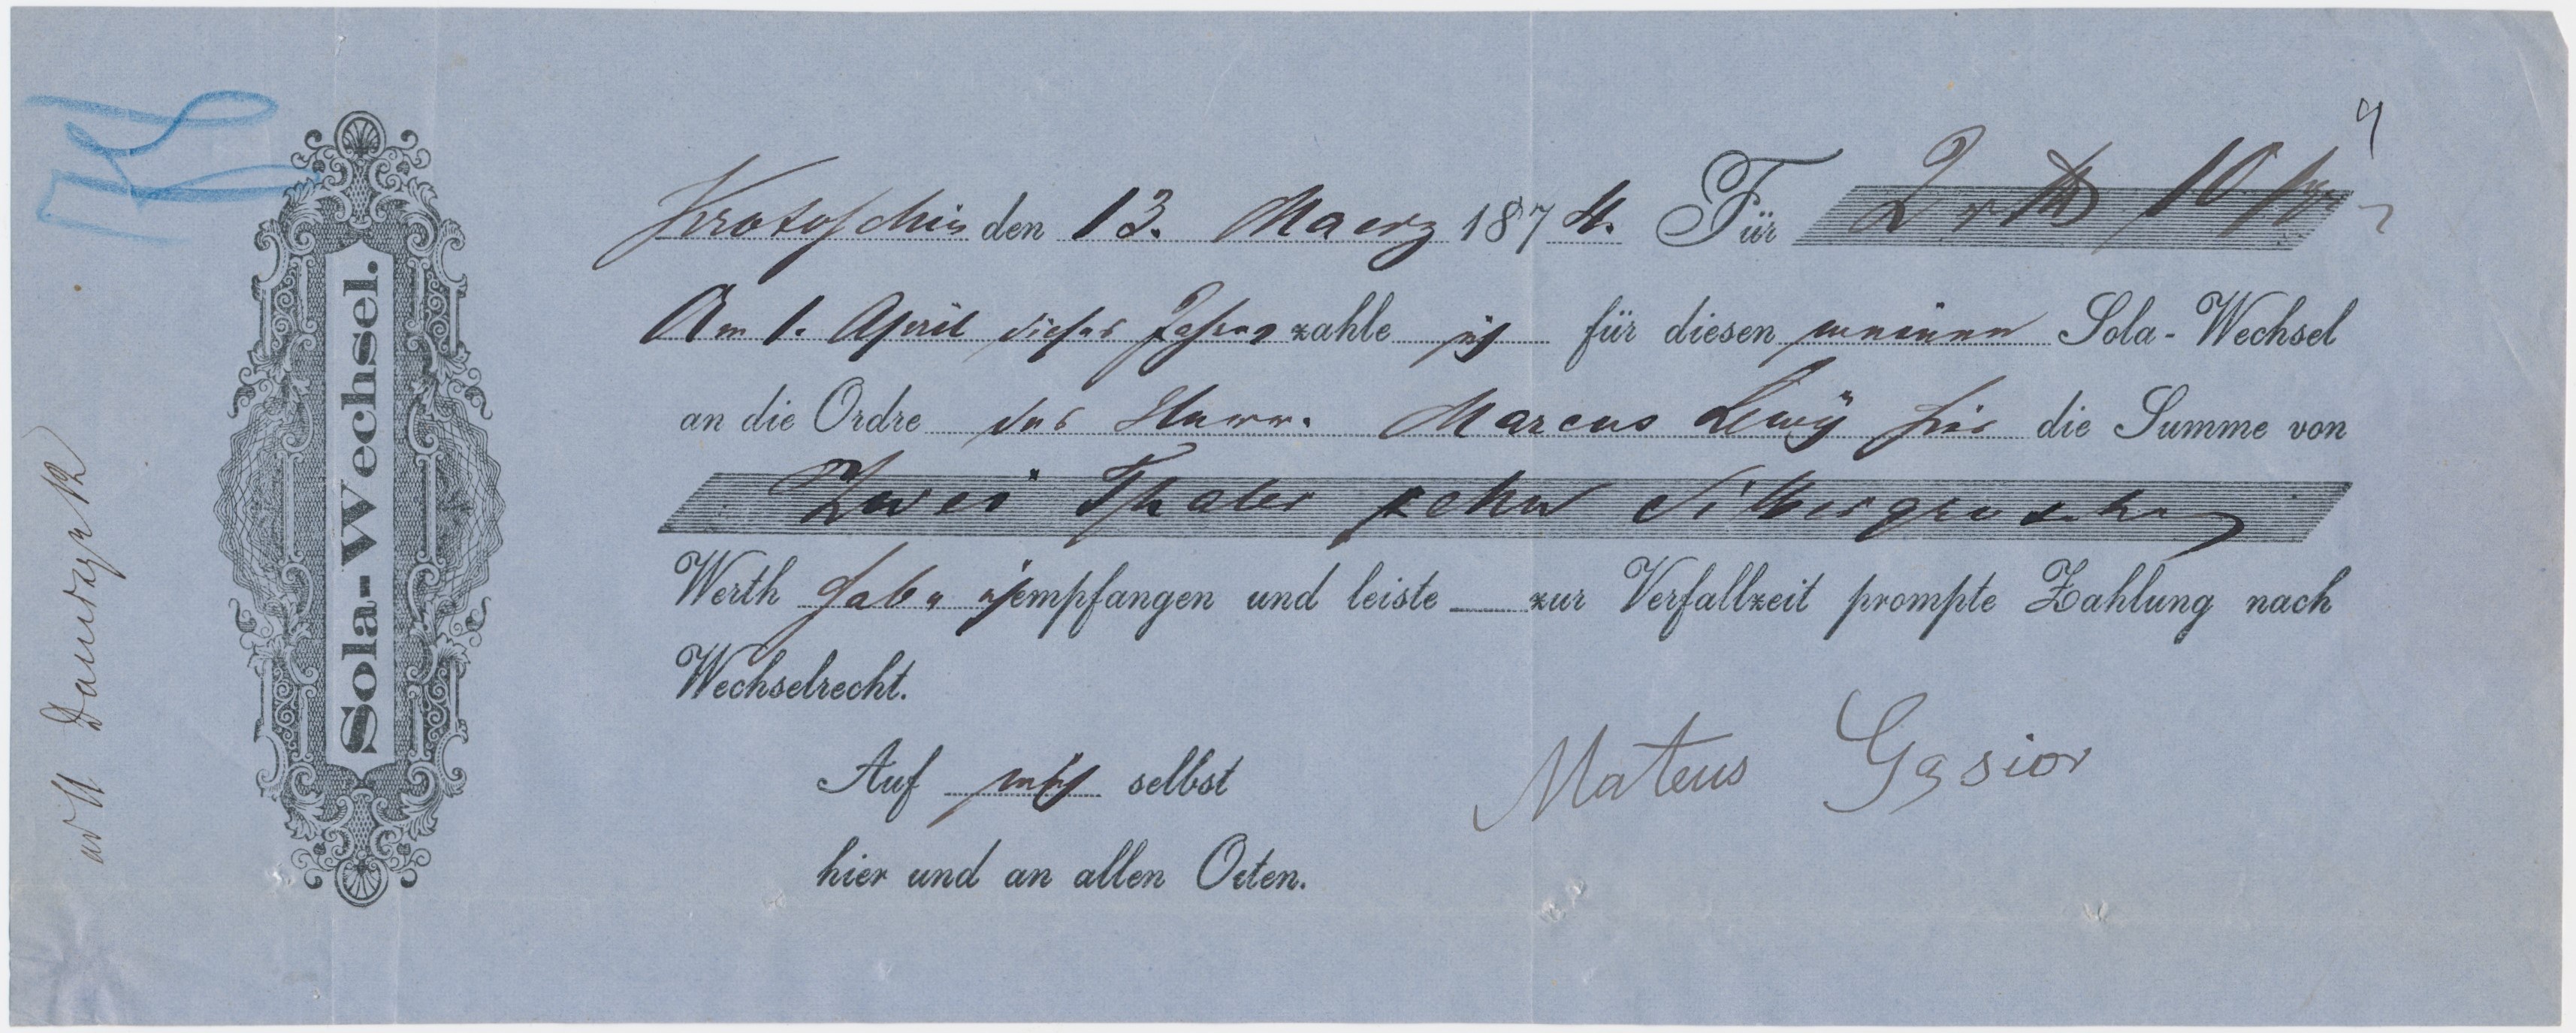 Sola-Wechsel.
Krotoschin den 13. Maerz 1874. Für 2 rth 10 sgr
Am 1. April dieses Jahres zahle ich für diesen meinen Sola-Wechsel
an die Ordre des Herrn. Marcus Lewÿ hier die Summe von
Zwei Thaler zehn Silbergroschen
Werth habe ich empfangen und leiste zur Verfallzeit prompte Zahlung nach
Wechselrecht.
Auf mich selbst
hier und an allen Orten.
Mateus Gąsior